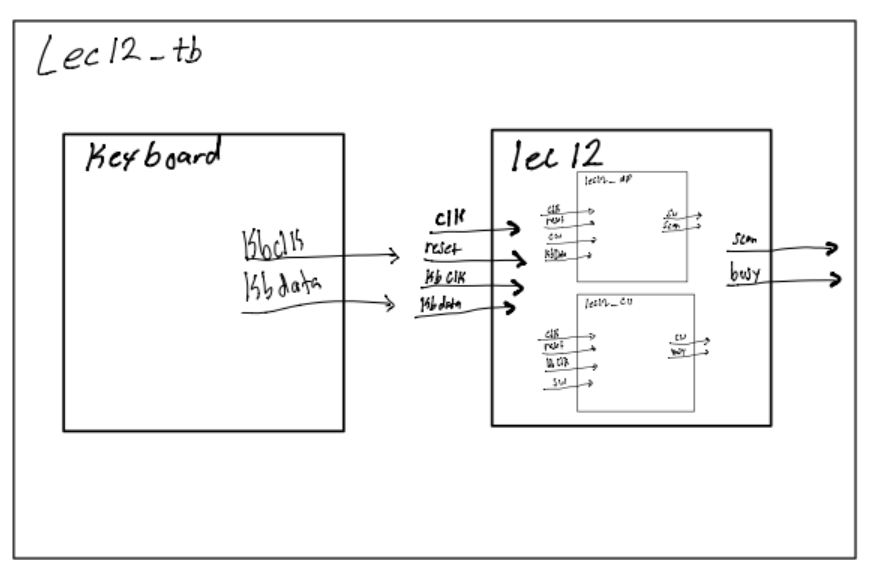 Lec12_tb
Keyboard
KbClk
Kbdata
clk
reset
Kb Clk
Kbdata
lec12
lec12_dp
clk
reset
cw
KbData
scan
lec12_cu
clk
reset
KbClk
sw
cw
busy
scan
busy